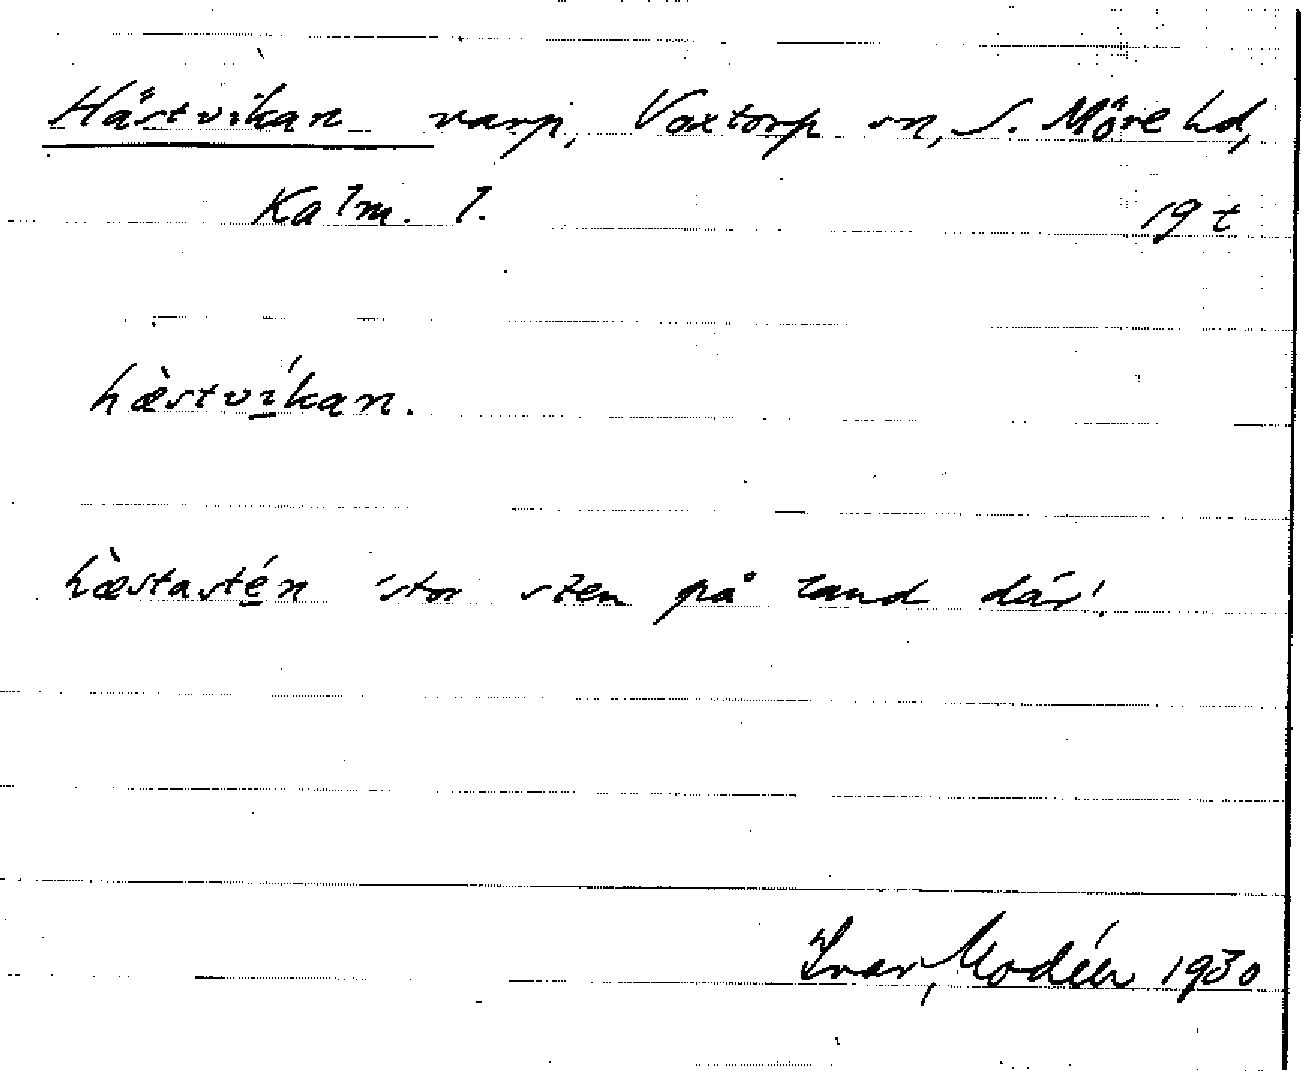 Hästvikan varp, Voxtorp sn, S. Möre hd,
Kalm. l. 19 t
hæ̀ství̲kan.
hæ̀stasté̲n 'stor sten på land där'.
Ivar Modéer 1930